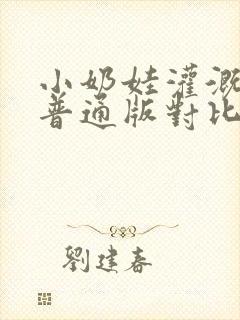 小奶娃灌溉
普通版對比
劉建春